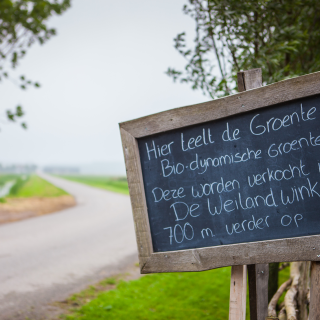 Hier teelt de Groente
Bio-dynamische Groente
Deze worden verkocht
De Weiland
700 m verder op